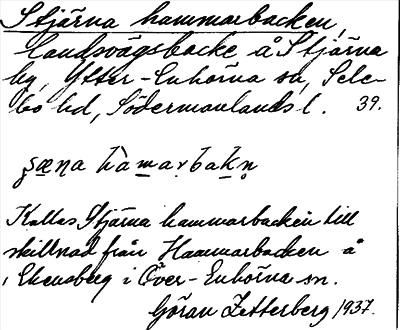 Stjärna hammarbacken,
landsvägsbacke å Stjärna
by, Ytter-Enhörna sn, Sele-
bo hd, Södermanlands l. 39.
Kallas Stjärna hammarbacken till
skillnad från Hammarbacken å
Ekensberg i Över-Enhörna sn.
Göran Zetterberg 1937.